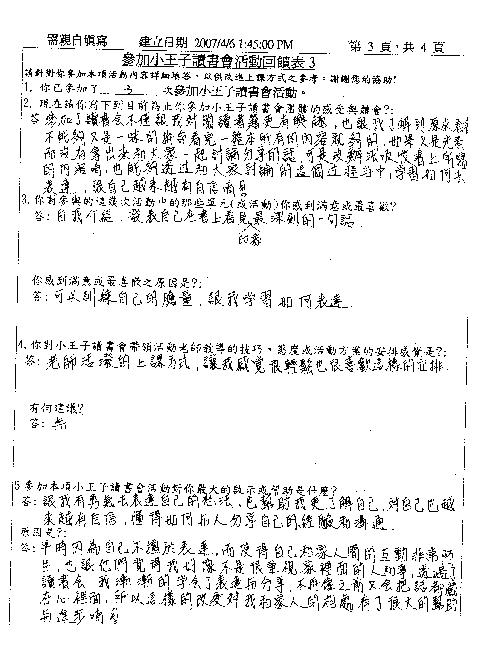 需親自填寫 建立日期 2007/4/6 1:45:00 PM 第 3 頁, 共 4 頁
參加小王子讀書會活動回饋表 3
請針對你參加本項活動內容詳細填答，以供改進上課方式之參考，謝謝您的協助!
1. 你已參加了 3 次參加小王子讀書會活動。
2. 現在請你寫下到目前為止你參加小王子讀書會團體的感受與體會?:
答: 參加了讀書會不僅讓我對閱讀書籍更有瞭解，也讓我了解到原來
不能夠只是一味的拼命看完一整本所有的內容就夠的，如果只是光看
而沒有拿出來和大家一起討論分享的話，
的內涵，也能夠透過和大家討論的這個過程當中，學習如何去
表達，讓自己
3. 你對參與的這幾次活動中的那些單元(或活動)你感到滿意或最喜歡?
答: 自我介紹、發表自己在書上看見最深刻的一句話
印象
你感到滿意或最喜歡之原因是?:
答: 可以訓練自己的膽量，讓我學習如何表達
4. 你對小王子讀書會帶領活動老師教導的技巧、態度或活動方案的安排感覺是?:
答: 老師活潑的上課方式，讓我感覺很輕鬆也很喜歡這樣的安排
有何建議?
答: 無
5 參加本項小王子讀書會活動對你最大的啟示或幫助是什麼?
答: 讓我有勇氣去表達自己的想法、也幫助我更了解自己，對自己也越
來越有自信，懂得如何和人分享自己的經驗和溝通
原因是?:
答: 平時因為自己不擅於表達，而使得自己和家人間的互動非常
也讓他們覺得我好像不是很重視家裡面的人和事，透過了
讀書會 我漸漸的學會了表達與分享，不再像之前只會把話都藏
在心裡面，所以這樣的改變對我和家人的相處有了很大的幫助
與進步